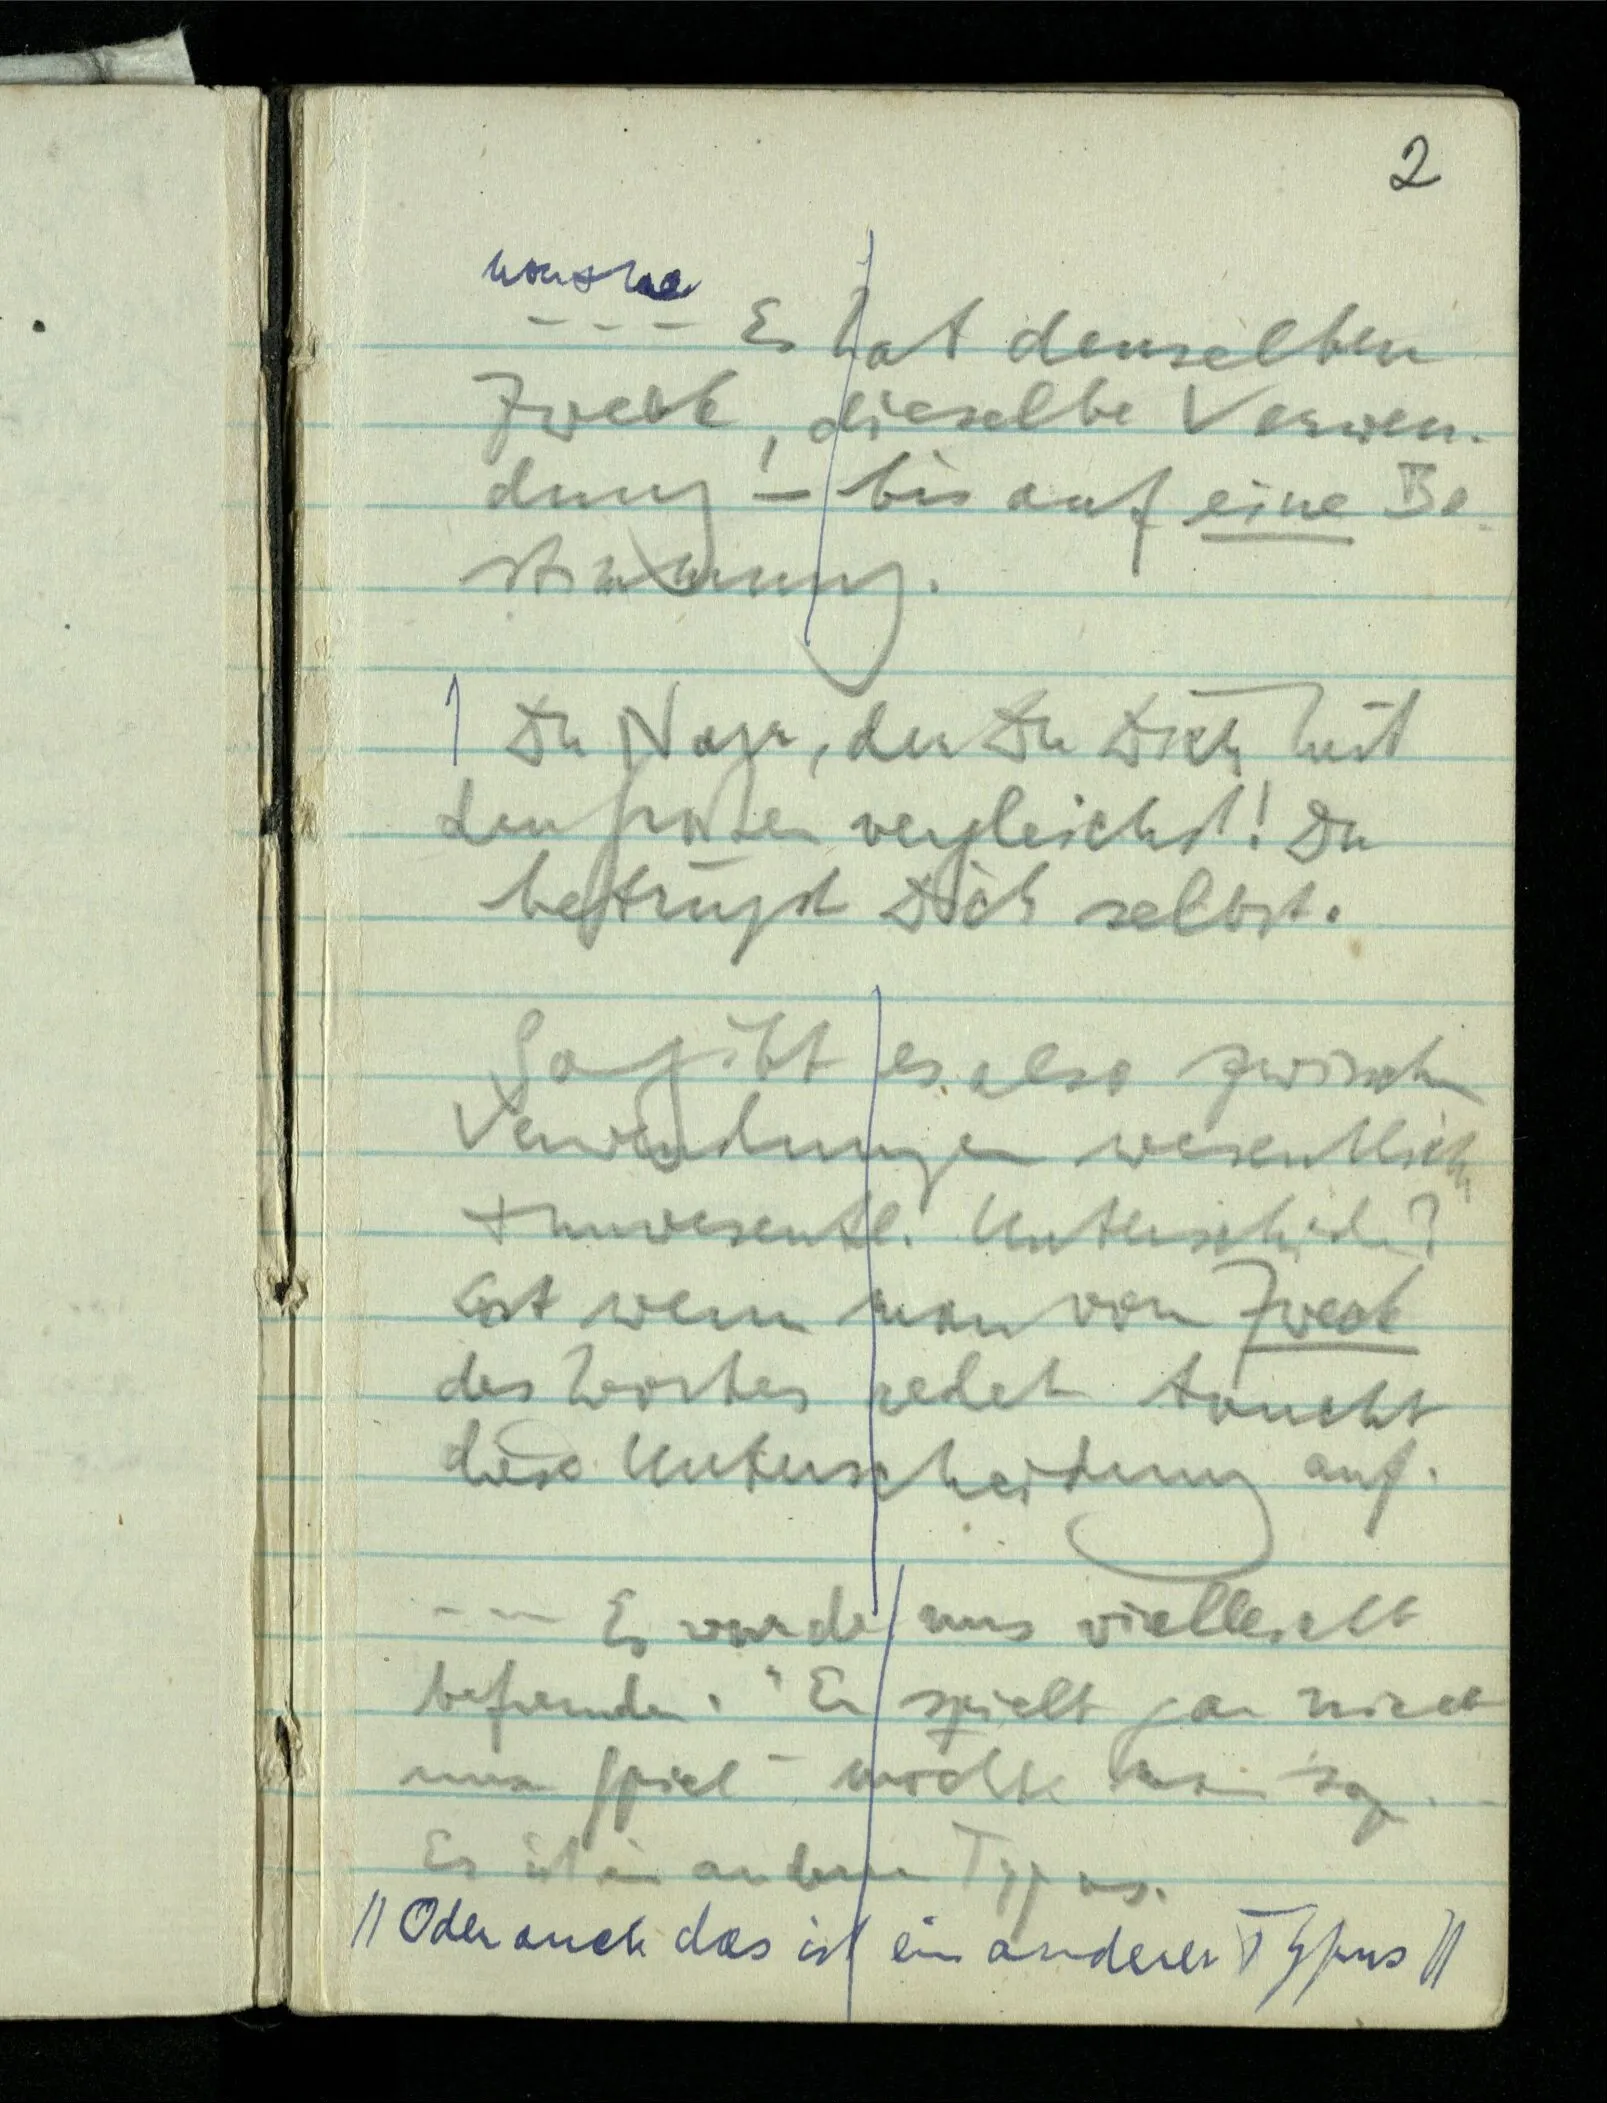 2
--- Es hat denselben
Zweck, dieselbe Verwen-
dung – bis auf eine Be-
stimmung.
Du Narr, der Du Dich mit
den großen vergleichst! Du
betrügst Dich selbst.
So gibt es also zwischen
Verwendungen wesentliche
+ unwesentl. Unterschiede?
Erst wenn man vom Zweck
des Wortes redet taucht
diese Unterscheidung auf.
--- Es würde uns vielleicht
befremden. "Er spielt gar nicht
unser Spiel" möchte man sagen.
Es ist ein anderer Typus.
// Oder auch das ist ein anderer Typus //